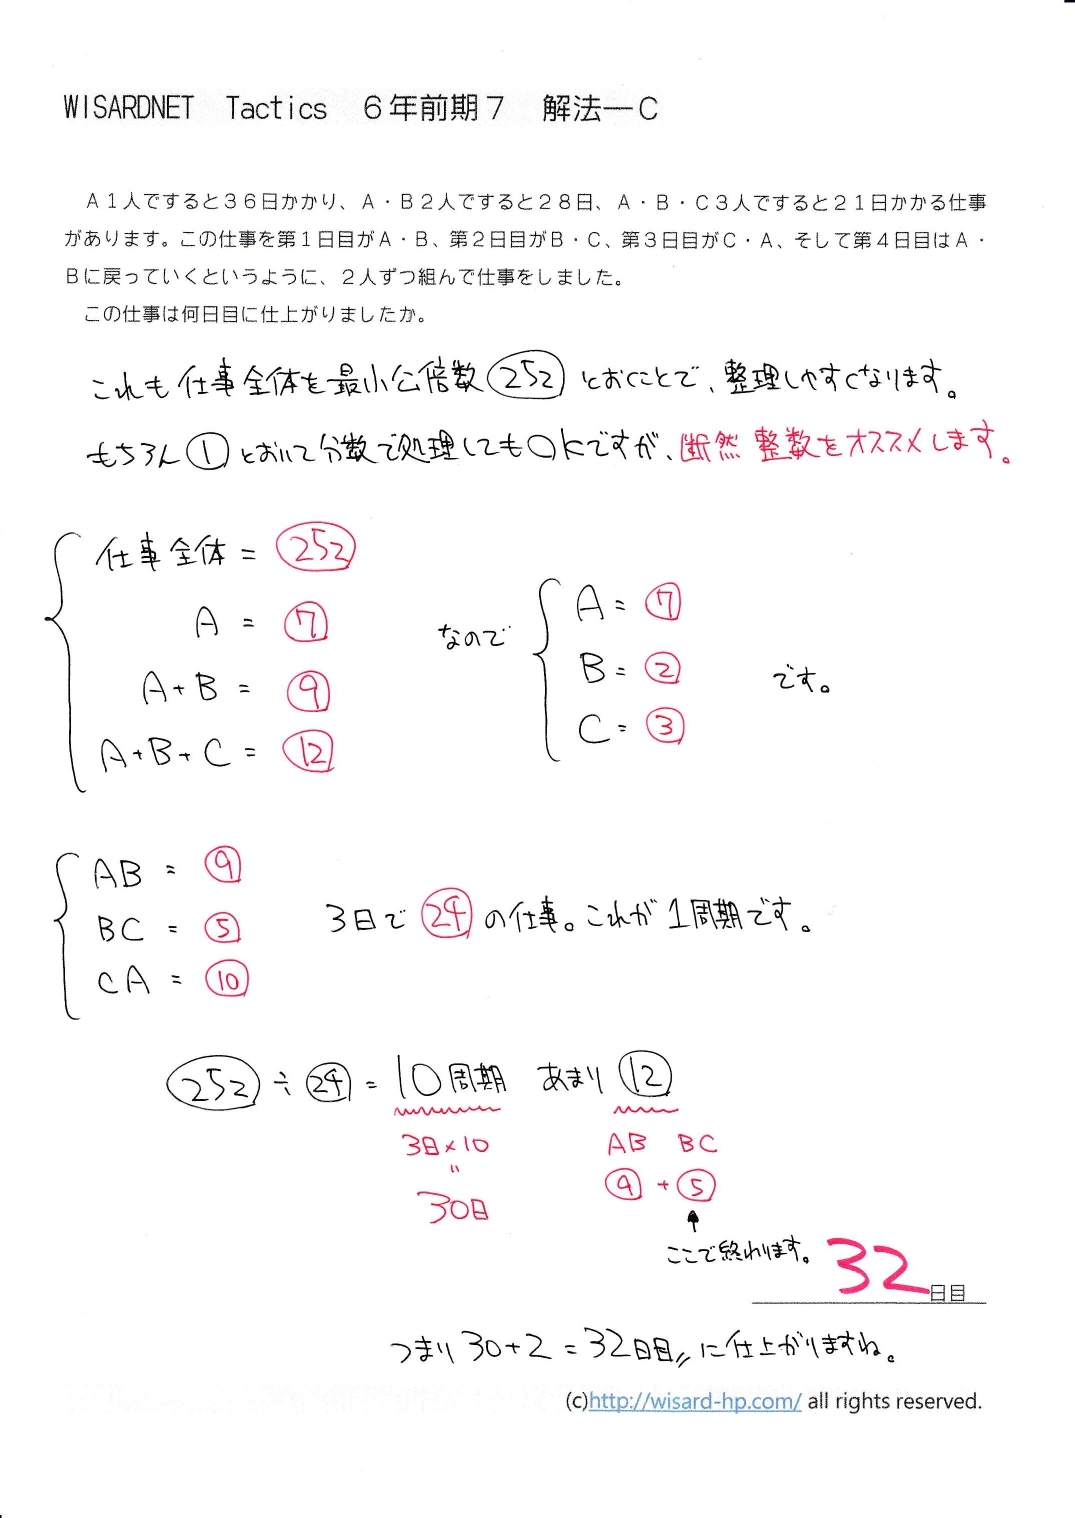 WISARDNET　Tactics　６年前期７　解法―Ｃ
Ａ１人ですると３６日かかり、Ａ・Ｂ２人ですると２８日、Ａ・Ｂ・Ｃ３人ですると２１日かかる仕事
があります。この仕事を第１日目がＡ・Ｂ、第２日目がＢ・Ｃ、第３日目がＣ・Ａ、そして第４日目はＡ・
Ｂに戻っていくというように、２人ずつ組んで仕事をしました。
この仕事は何日目に仕上がりましたか。
これも仕事全体を最小公倍数㉒52とおくことで、整理しやすくなります。
もちろん①とおいて分数で処理してもOKですが、断然整数をオススメします。
仕事全体 = 252
A = ⑦
A+B = ⑨
A+B+C = ⑫
なので
A = ⑦
B = ②
C = ③
です。
AB = ⑨
BC = ⑤
CA = ⑩
3日で㉔の仕事。これが1周期です。
252 ÷ ㉔ = 10周期 あまり ⑫
3日×10 AB BC
" ⑨ + ⑤
30日
ここで終わります。
32日目
つまり 30+2 = 32日目〃に仕上がりますね。
(c)http://wisard-hp.com/ all rights reserved.